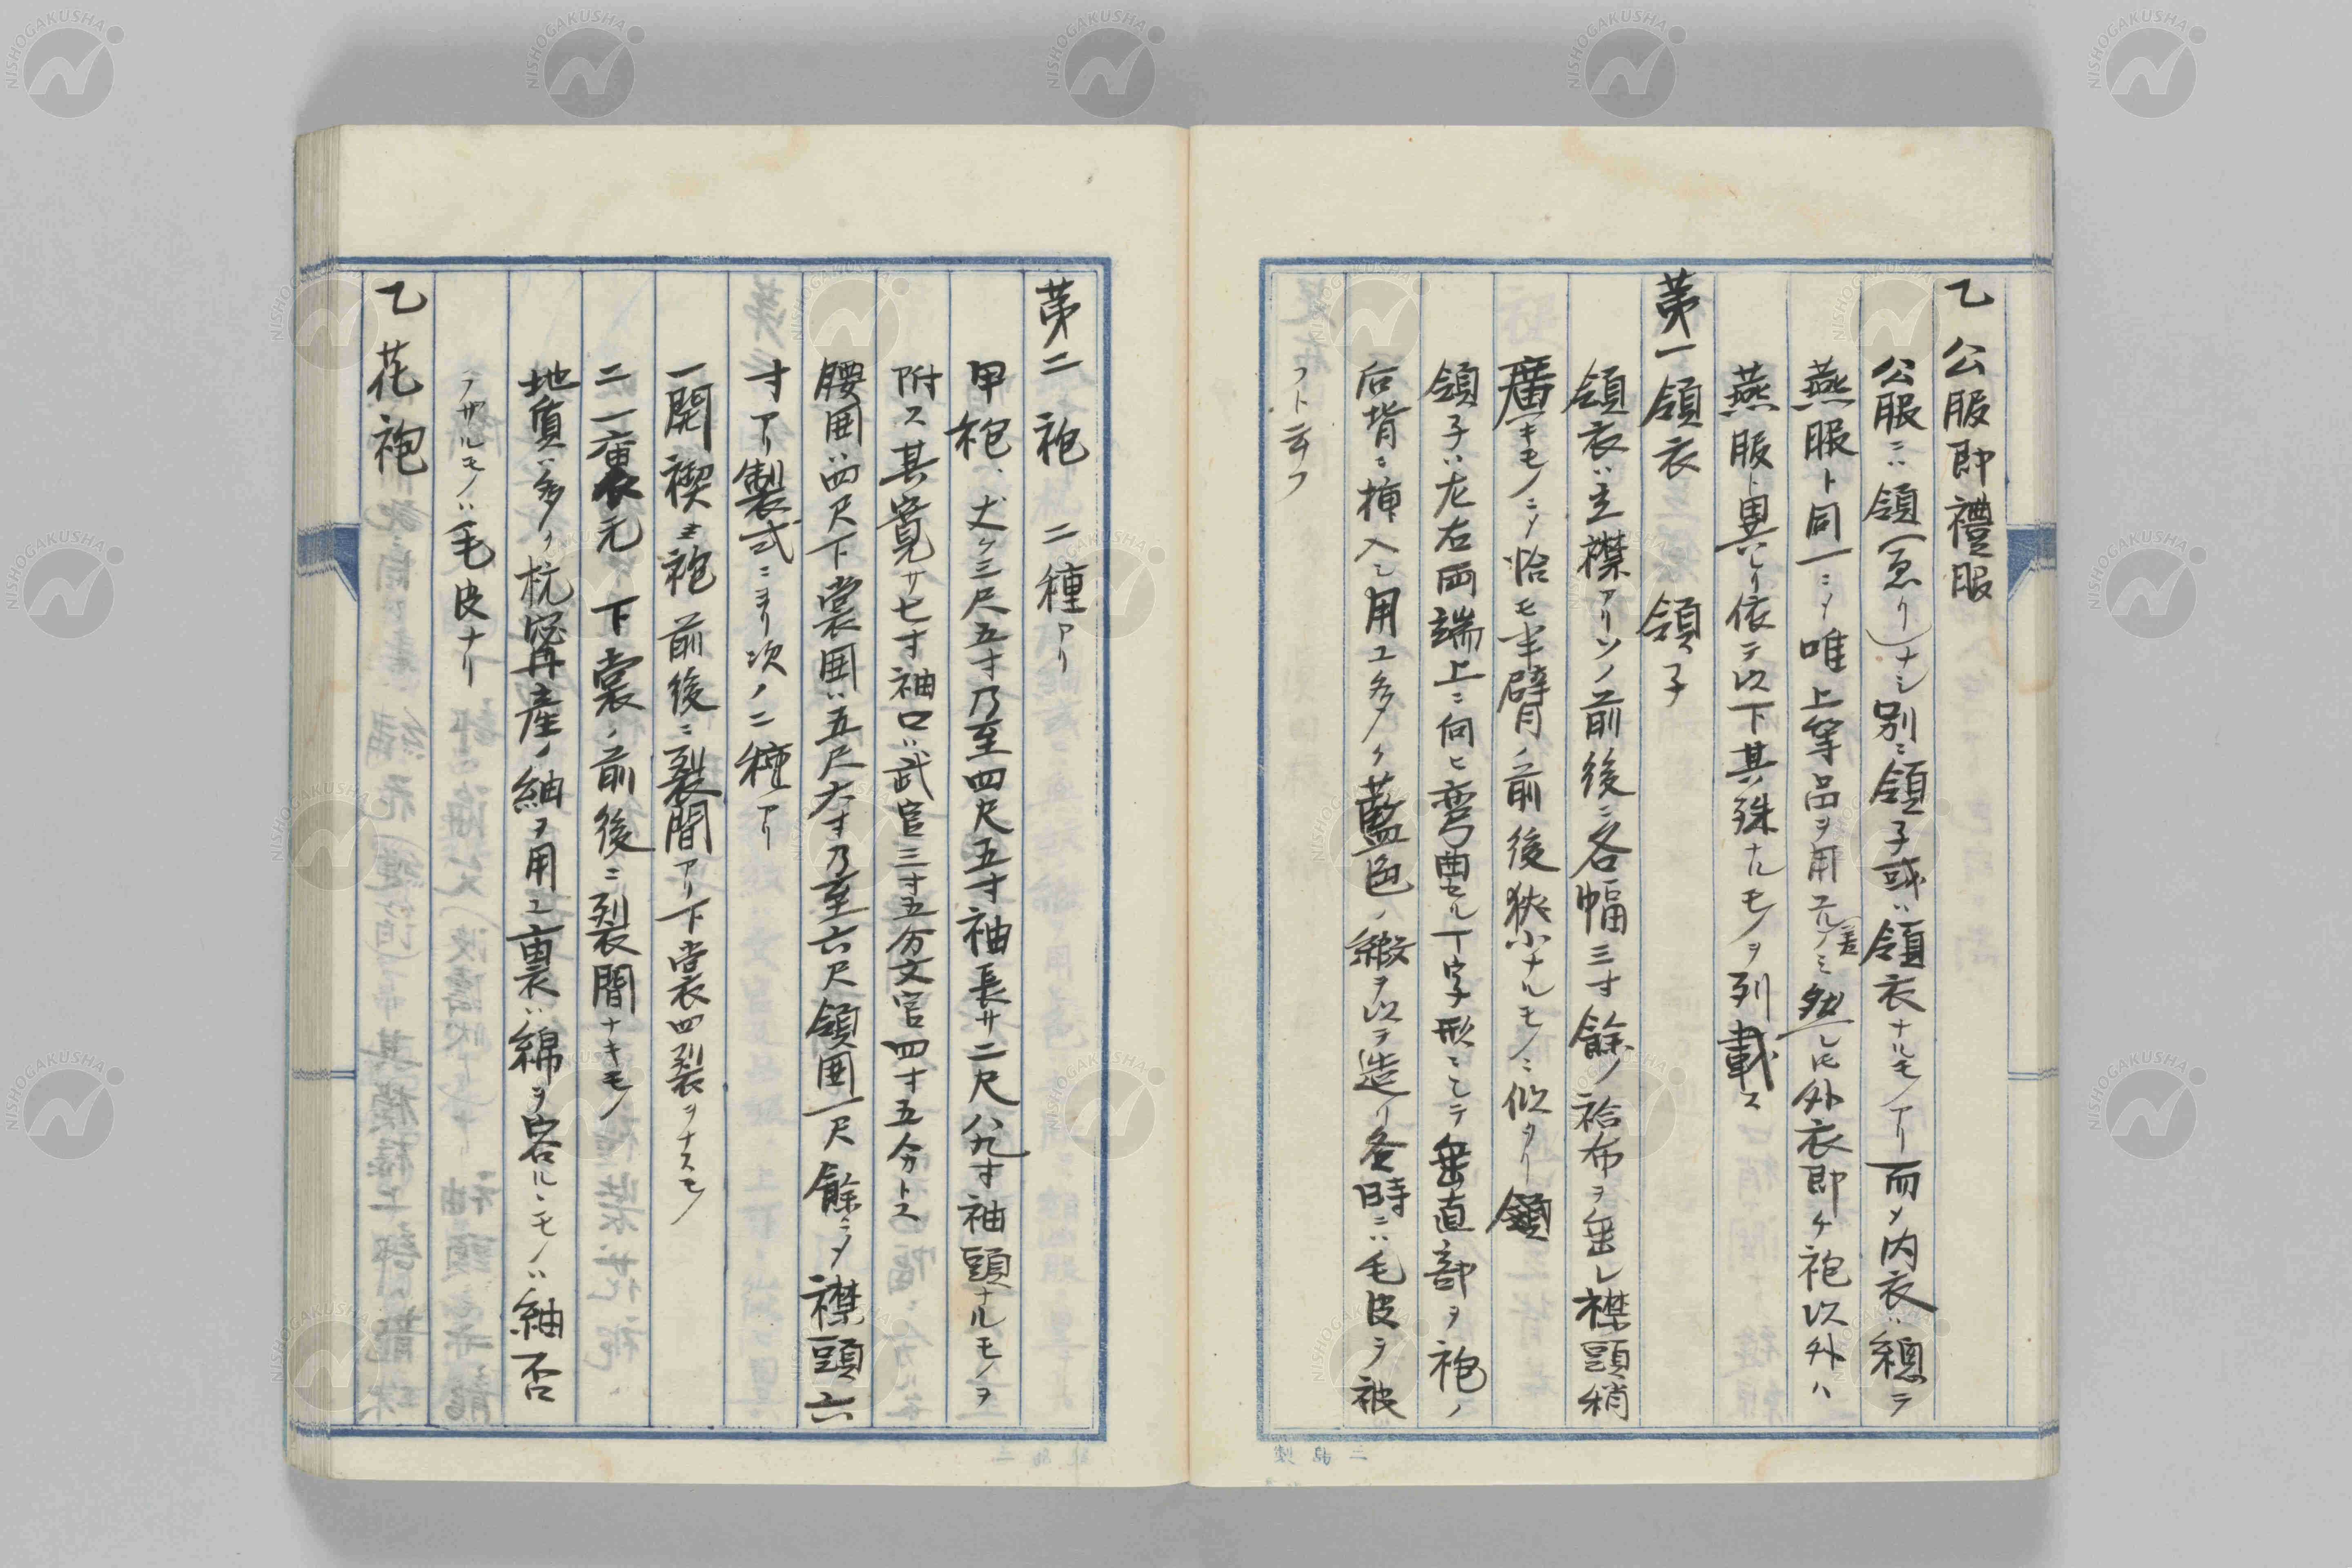 乙 公服即禮服
公服ニハ領(ゑり)ナシ別ニ領子或ハ領衣ナルモノアリ而メ内衣ハ總テ
燕服ト同一ニメ唯上等品ヲ用ユルノ差ミ然レ𪜈外衣即ケ袍以外ハ
燕服ト異レリ依テ以下其殊ナルモノヲ列載ス
第一 領衣 領子
領衣ハ立襟アリソノ前後ニ各幅三寸餘ノ袷布ヲ垂レ襟頭稍
廣キモノニメ恰モ半臂ノ前後狹小ナルモノニ似タリ領
領子ハ左右両端上ニ向ヒ弯曲セル丁字形ニシテ垂直部ヲ袍ノ
后背ニ挿入シ用ユ多ク藍色ノ緞ヲ以テ造リ冬時ニハ毛皮ヲ被
フト云フ
第二 袍 二種アリ
甲袍、丈ケ三尺五寸乃至四尺五寸袖長サ二尺八九寸袖頭ナルモノヲ
附ス其寛サ七寸袖口ハ武官三寸五分文官四寸五分トス
腰囲ハ四尺下裳囲ハ五尺六寸乃至六尺領囲一尺餘ニメ襟頭六
寸アリ製式ニヨリ次ノ二種アリ
一開禊ヰ袍 前後ニ裂開アリ下裳四裂ヲナスモノ
二一裹元 下裳ノ前後ニ裂開ナキモノ
地質ハ多ク杭寧産ノ紬ヲ用ユ裏ハ綿ヲ容ルヽモノハ紬否
ラザルモノハ毛皮ナリ
乙 花袍
製 島 三
NISHOGAKUSHA